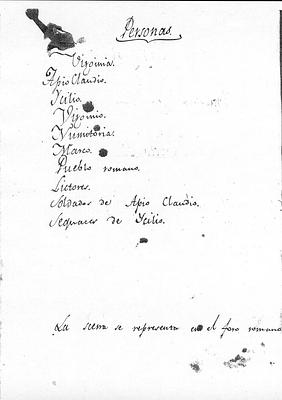 Personas.
Virginia.
Apio Claudio.
Icilio.
Virginio.
Numitoria.
Marco.
Pueblo romano.
Lictores.
Soldados de Apio Claudio.
Sequaces de Icilio.
La scena se representa en el foro romano